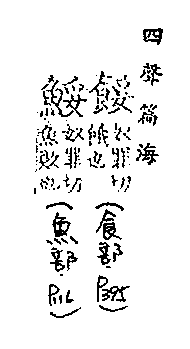 四聲篇海
餒奴罪切
飢也
(食部 P395)
鮾奴罪切
魚敗也
(魚部 P116)